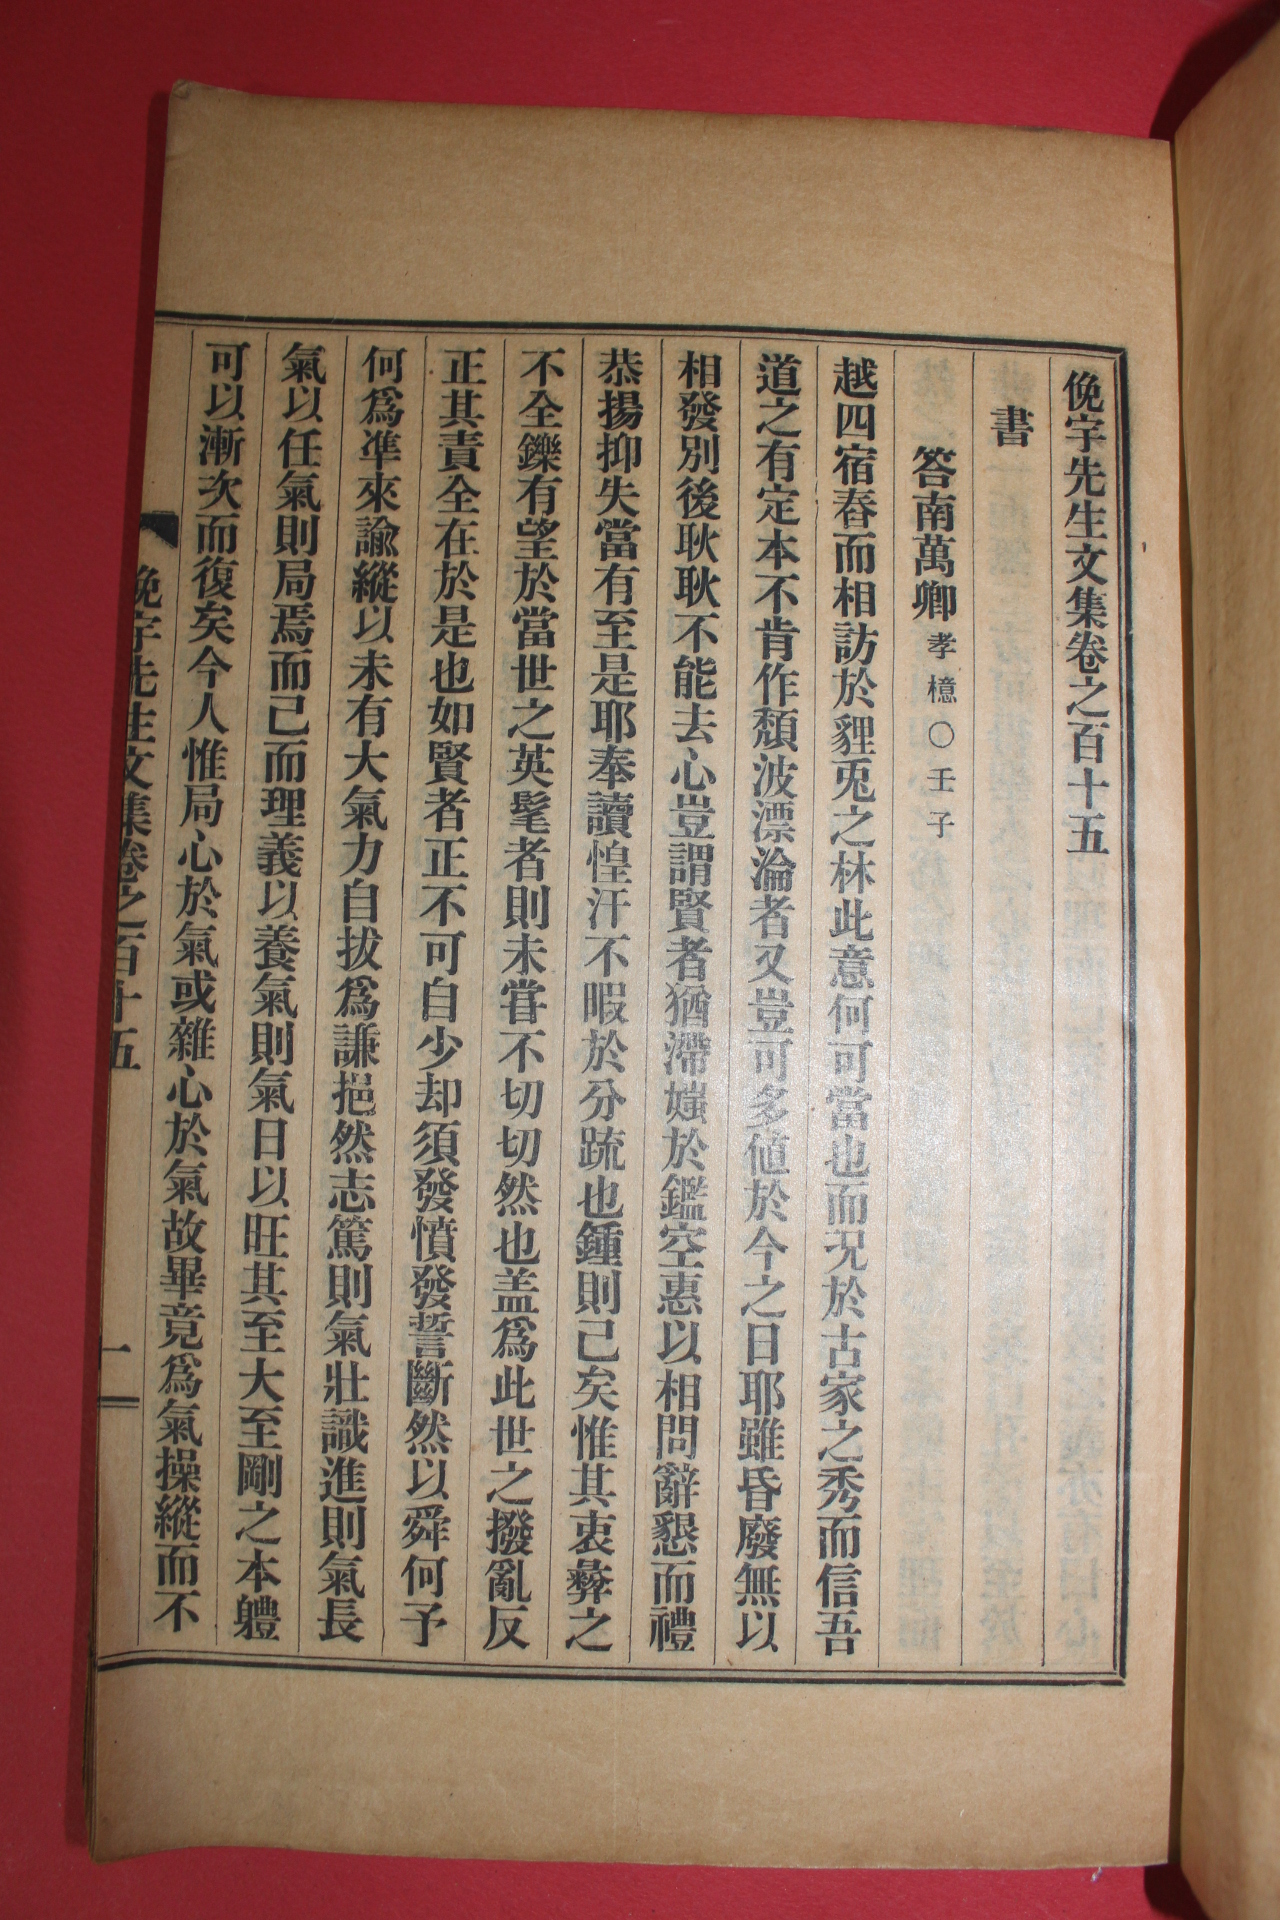 俛宇先生文集卷之百十五
書
答南萬卿孝檍○壬子
越四宿舂而相訪於貍兎之林此意何可當也而况於古家之秀而信吾
道之有定本不肯作頹波漂淪者又豈可多値於今之日耶雖昏廢無以
相發別後耿耿不能去心豈謂賢者猶滯媸於鑑空惠以相問辭懇而禮
恭揚抑失當有至是耶奉讀惶汗不暇於分疏也鍾則已矣惟其衷彜之
不全鑠有望於當世之英髦者則未甞不切切然也盖爲此世之撥亂反
正其責全在於是也如賢者正不可自少却須發憤發誓斷然以舜何予
何爲凖來諭縱以未有大氣力自拔爲謙挹然志篤則氣壯識進則氣長
氣以任氣則局焉而已而理義以養氣則氣日以旺其至大至剛之本軆
可以漸次而復矣今人惟局心於氣或雜心於氣故畢竟爲氣操縱而不
俛宇先生文集卷之百十五
一